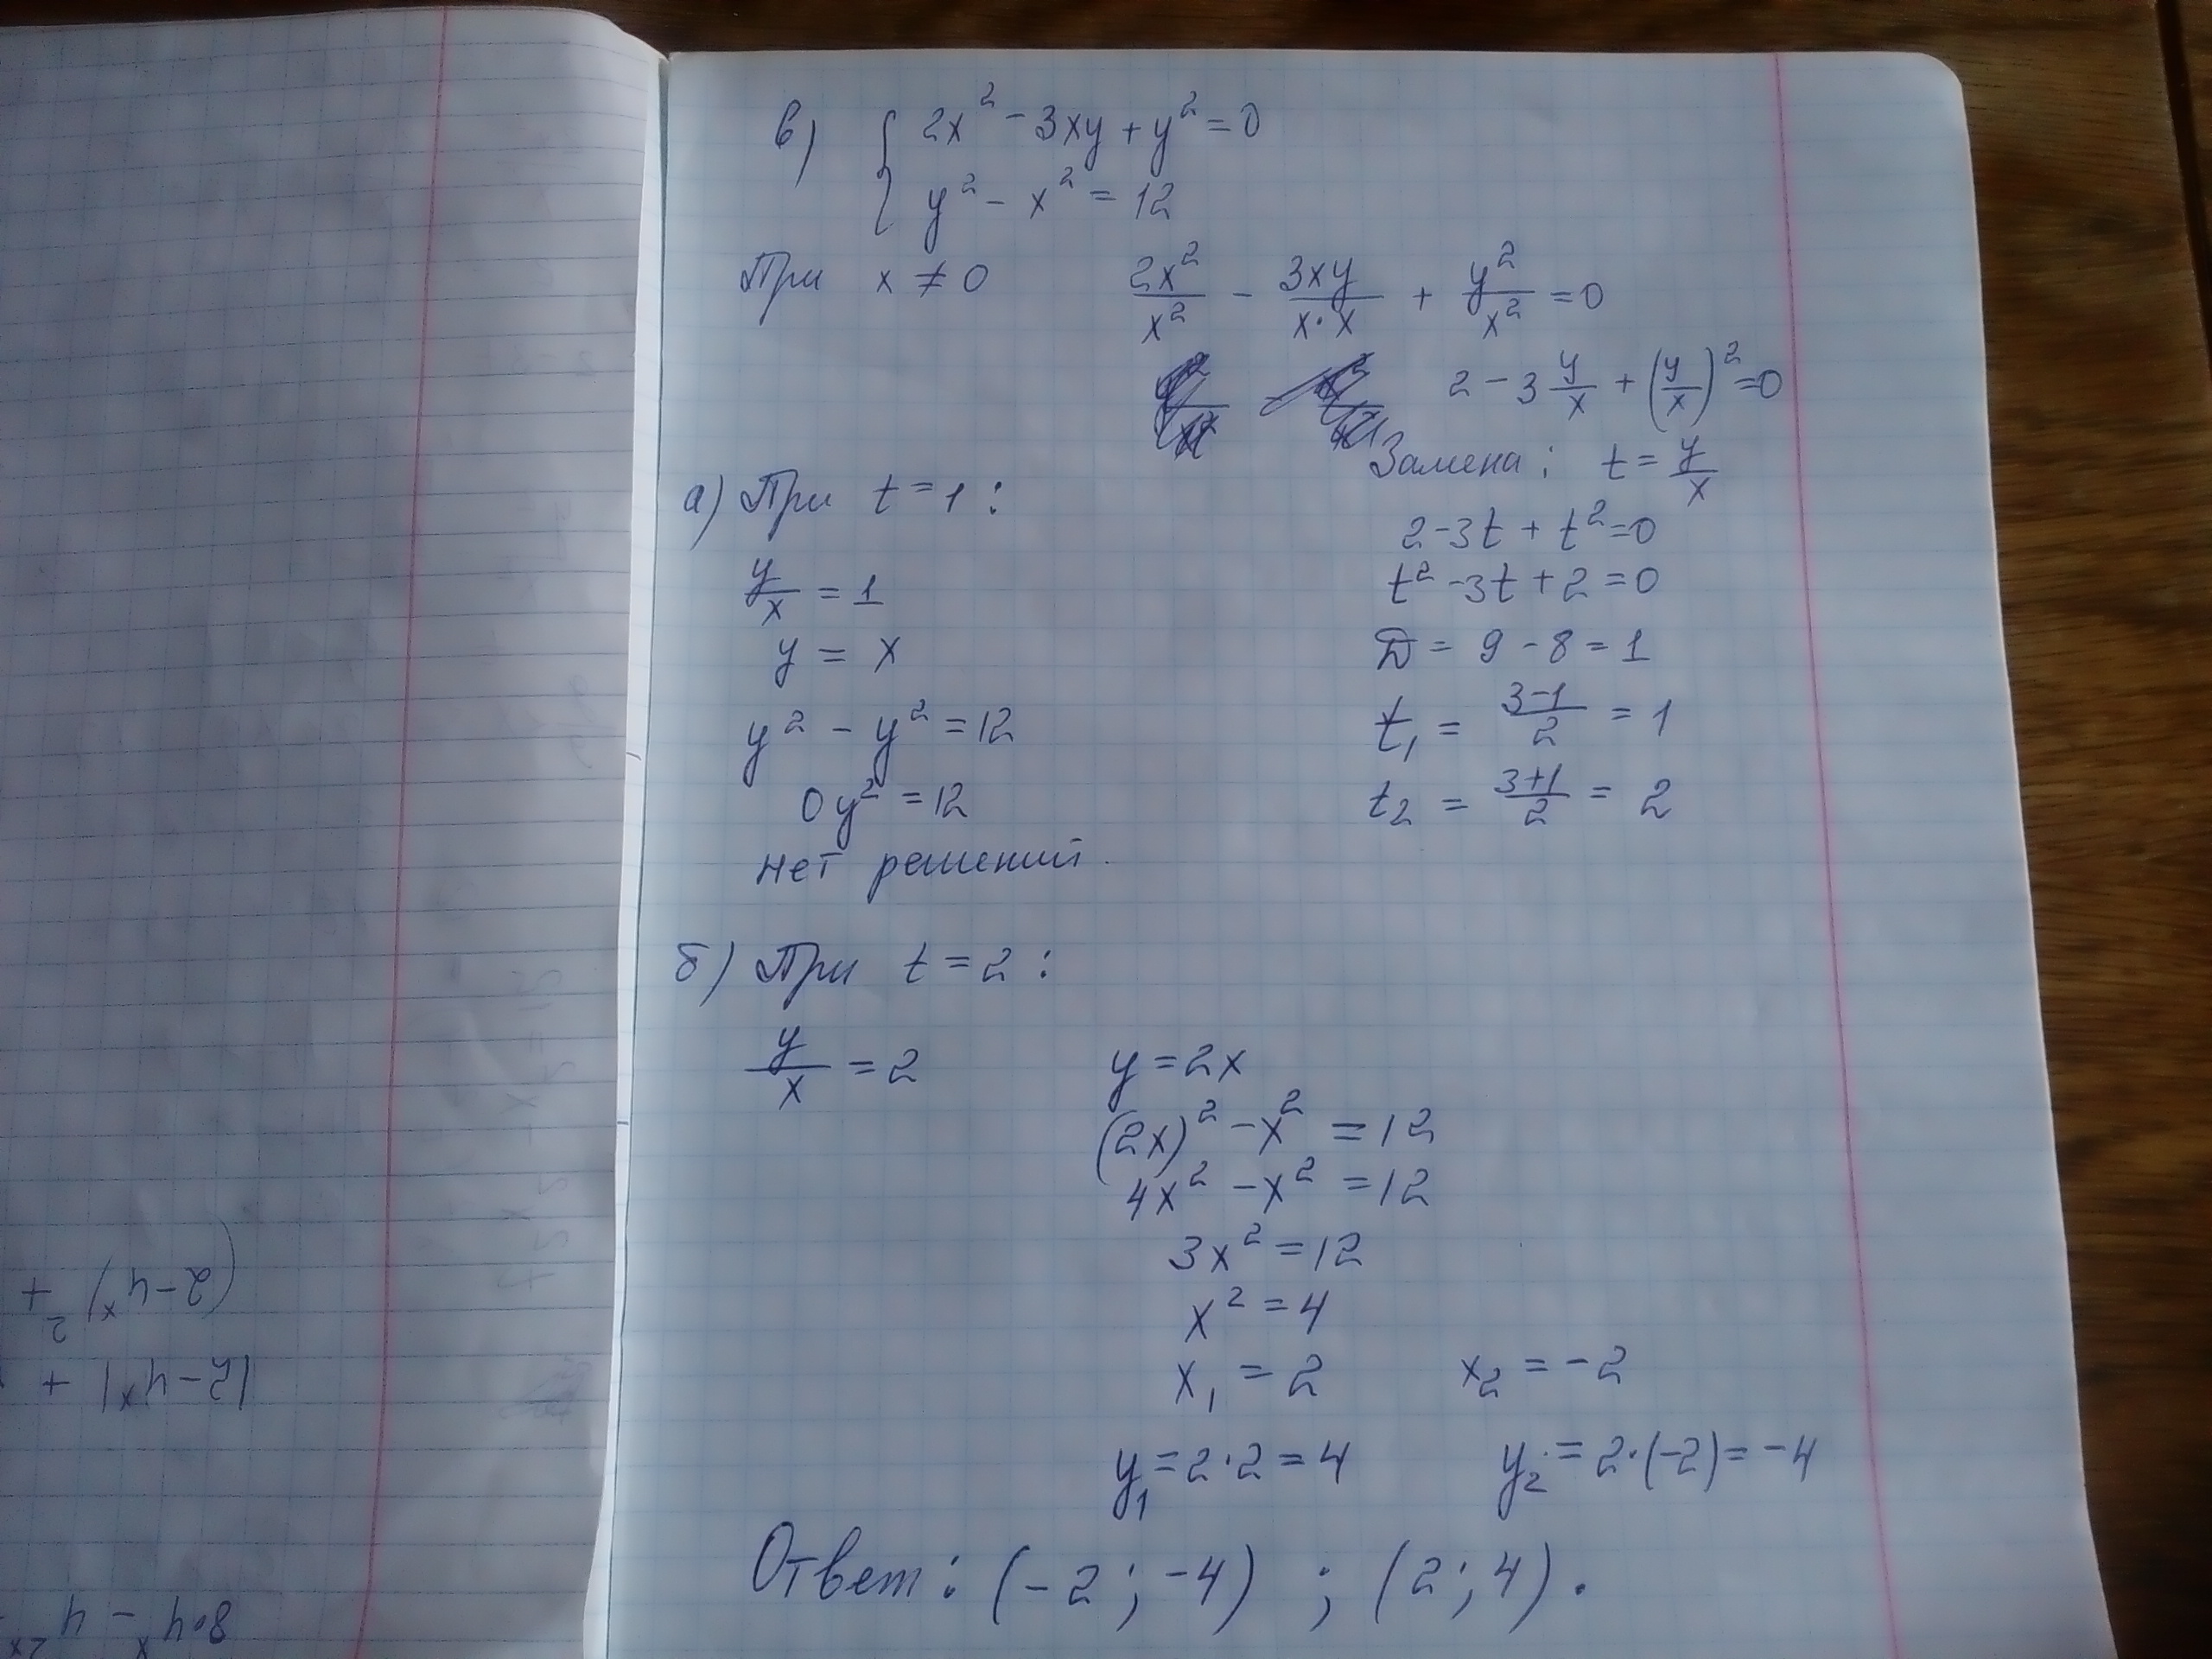 в) { 2x² - 3xy + y² = 0
y² - x² = 12
При x ≠ 0 2x²/x² - 3xy/x·x + y²/x² = 0
2 - 3 y/x + (y/x)² = 0
Замена: t = y/x
2 - 3t + t² = 0
t² - 3t + 2 = 0
D = 9 - 8 = 1
t₁ = 3-1/2 = 1
t₂ = 3+1/2 = 2
а) При t = 1 :
y/x = 1
y = x
y² - y² = 12
0y² = 12
нет решений.
б) При t = 2 :
y/x = 2 y = 2x
(2x)² - x² = 12
4x² - x² = 12
3x² = 12
x² = 4
x₁ = 2 x₂ = -2
y₁ = 2·2 = 4 y₂ = 2·(-2) = -4
Ответ: (-2; -4) ; (2; 4).
8·4ˣ - 4²ˣ
12-4ˣ| +
(2-4ˣ)² +